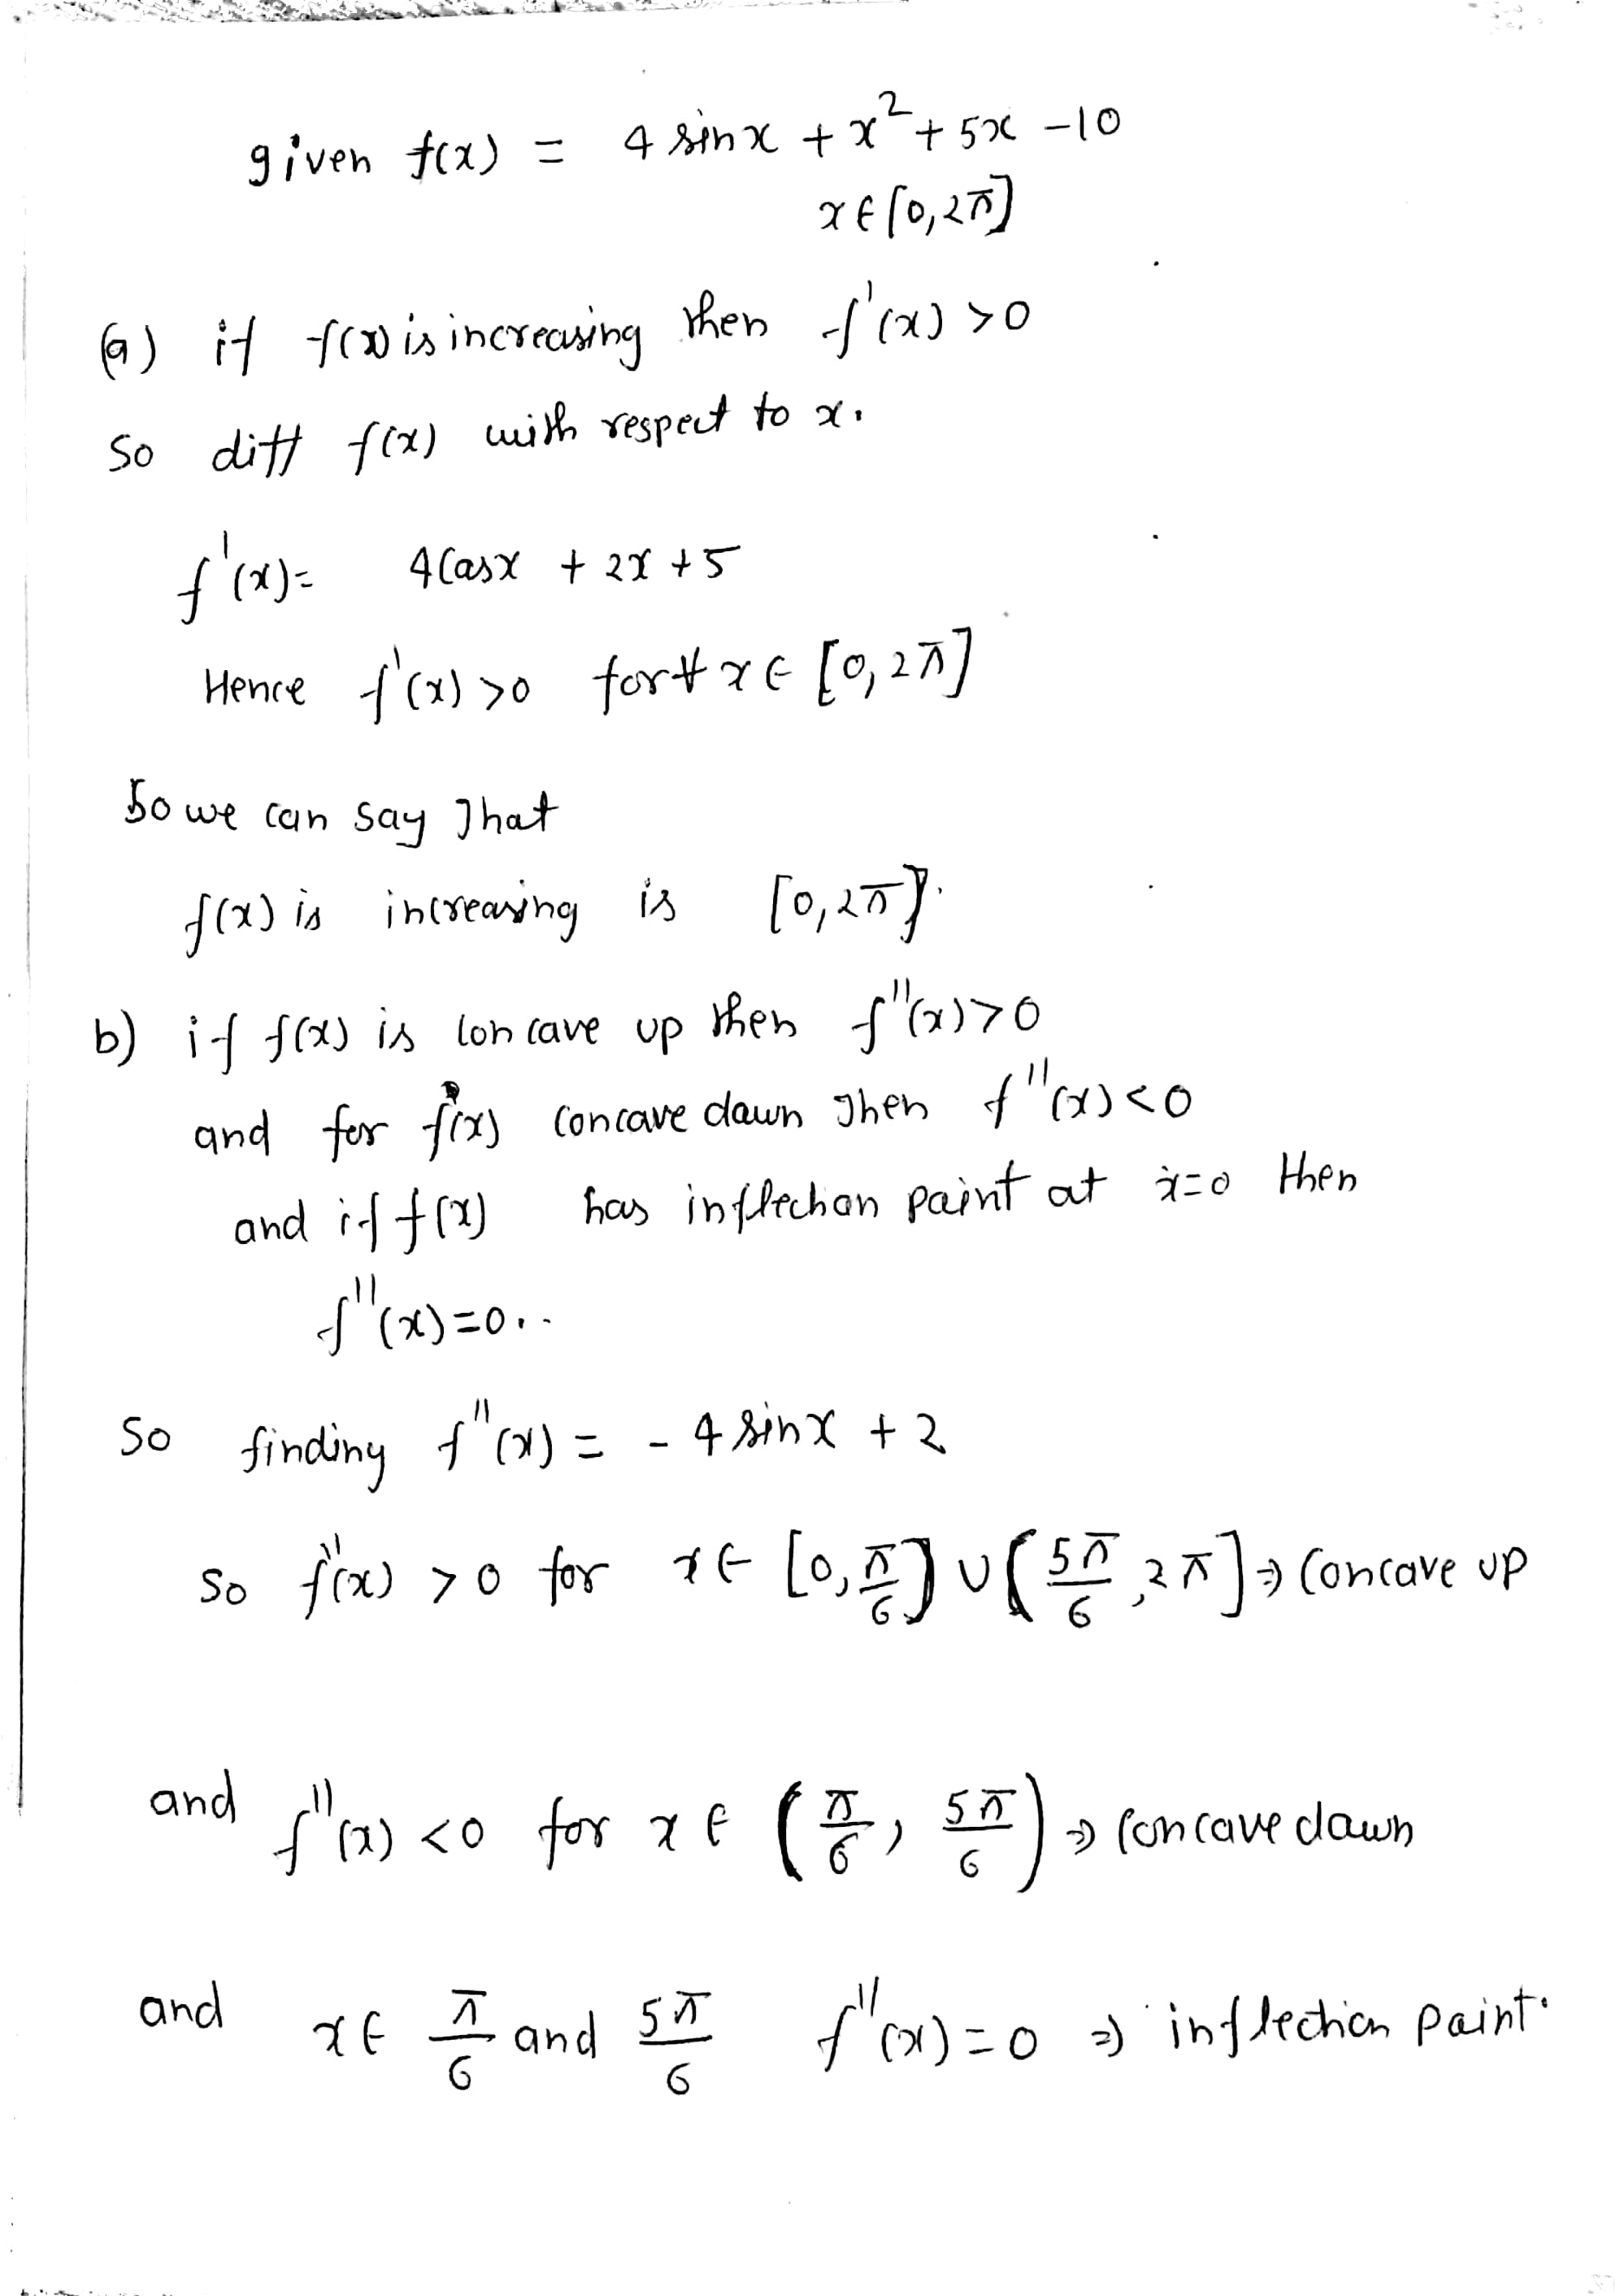 given f(x) = 4 sinx + x² + 5x - 10
x ∈ [0, 2π]
(a) if f(x) is increasing then f'(x) > 0
so diff f(x) with respect to x.
f'(x) = 4Cosx + 2x + 5
Hence f'(x) > 0 for ∀ x ∈ [0, 2π]
So we can say That
f(x) is increasing is [0, 2π].
b) if f(x) is concave up then f''(x) > 0
and for f(x) concave dawn Then f''(x) < 0
and if f(x) has inflection paint at x=0 then
f''(x) = 0..
So finding f''(x) = - 4 sinx + 2
So f''(x) > 0 for x ∈ [0, π/6) ∪ (5π/6, 2π] ⇒ Concave up
and f''(x) < 0 for x ∈ (π/6, 5π/6) ⇒ Concave dawn
and x ∈ π/6 and 5π/6 f''(x) = 0 ⇒ inflection paint.